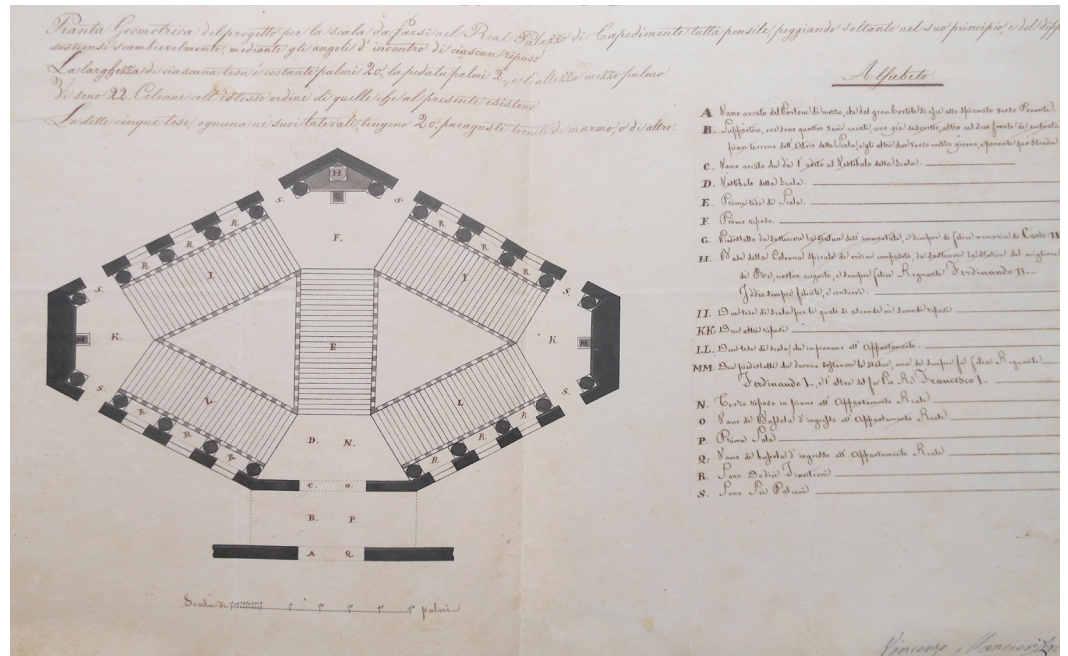 Pianta Geometrica del progetto per la scala da farsi nel Real Palazzo di Capodimonte tutta pensile poggiando soltanto nel suo principio, e del
sostiensi scambievolmente, mediante gli angoli d'incontro di ciascun riposo
La larghezza di ciascuna tesa è costante palmi 20, la pedata palmi 2, e l'altezza mezzo palmo
Vi sono 22. Colonne coll'istesso ordine di quelle che al presente esistono
Le dette cinque tese, ognuna ne suoi laterali, tengono 20. di marmo, o di altro.
Alfabeto.
A Vano arcato del Portone di mezzo, che dal gran Cortile di si allo spianato verso Ponente.
B. Supportico, ove sono quattro vani arcati, uno già descritto, altro nel suo fronte di entrata
pian terreno dell' della Scala, e gli altri due verso mezzo giorno,
C. Vano arcato che dà l'adito al Vestibolo della Scala.
D. Vestibolo della Scala.
E. Prima tesa di Scala.
F. Primo riposo.
G. Piedistallo da sostenere la statua dell'immortale, e sempre di felice memoria di Carlo III
H. Base della Colonna spirale di ordine composito, da sostenere la statua del migliore
de Re, nostro augusto, e sempre felice Regnante Ferdinando II.
Iddio sempre feliciti, e conservi.
II. Due tese di Scala per le quali si ascende ai secondi riposi
KK. Due altri riposi
LL. Due tese di scala, che impianano all' Appartamento.
MM. Due piedistalli che devono sostenere le statue, una del sempre fu felice Regnante
Ferdinando I., e l'altra del fu Pio Re Francesco I.
N. Terzo riposo in piano all' Appartamento Reale
O Vano di Bussola d'ingresso all' Appartamento Reale
P. Prima Sala
Q Vano di bussola d'ingresso all' Appartamento Reale
R. Sono Dodici Finestroni
S. Sono Sei Balconi
H
G
S.
S.
F.
R
R
R
R
R
R
I
I
S.
S.
M
K.
E
K.
M
S.
S.
L
L
R
R
R
R
R
R
D. N.
C. O.
B. P.
A Q
Scala di palmi
Vincenzo